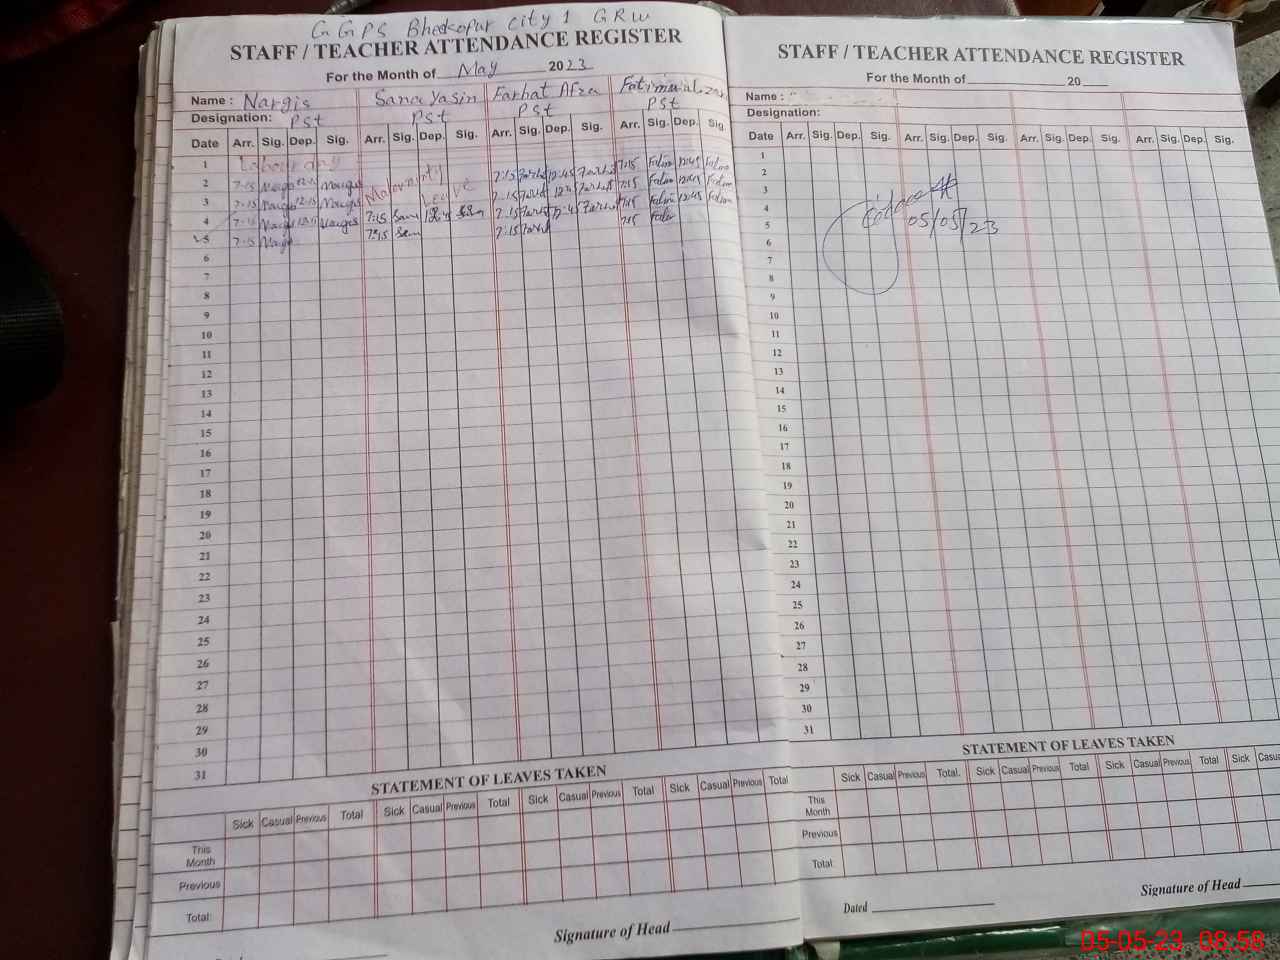 GGPS Bheekopur City 1 GRW
STAFF / TEACHER ATTENDANCE REGISTER
For the Month of May 2023
Name : Nargis Sana Yasin Farhat Afza
Designation: PSt PSt PSt PSt
Date Arr. Sig. Dep. Sig. Arr. Sig. Dep. Sig. Arr. Sig. Dep. Sig. Arr. Sig. Dep. Sig.
1 Labour day
2 7:15 Nargis 12:15 Nargis Maternity Leave 7:15 Farhat 12:45 Farhat 7:15 Fatim 12:45 Fatim
3 7:15 Nargis 12:15 Nargis 7:15 Farhat 12:45 Farhat 7:15 Fatim 12:45 Fatim
4 7:15 Nargis 12:15 Nargis 7:15 Sana 12:45 Sana 7:15 Farhat 12:45 Farhat 7:15 Fatim 12:45 Fatim
5 7:15 Nargis 7:15 Sana 7:15 Farhat 7:15 Fatim
6
7
8
9
10
11
12
13
14
15
16
17
18
19
20
21
22
23
24
25
26
27
28
29
30
31
STATEMENT OF LEAVES TAKEN
Sick Casual Previous Total Sick Casual Previous Total Sick Casual Previous Total Sick Casual Previous Total
This Month
Previous
Total:
Signature of Head
STAFF / TEACHER ATTENDANCE REGISTER
For the Month of 20
Name :
Designation:
Date Arr. Sig. Dep. Sig. Arr. Sig. Dep. Sig. Arr. Sig. Dep. Sig. Arr. Sig. Dep. Sig.
1
2
3
4
5
05/05/23
6
7
8
9
10
11
12
13
14
15
16
17
18
19
20
21
22
23
24
25
26
27
28
29
30
31
STATEMENT OF LEAVES TAKEN
Sick Casual Previous Total. Sick Casual Previous Total Sick Casual Previous Total Sick
This Month
Previous
Total:
Dated
Signature of Head
05-05-23 08:58